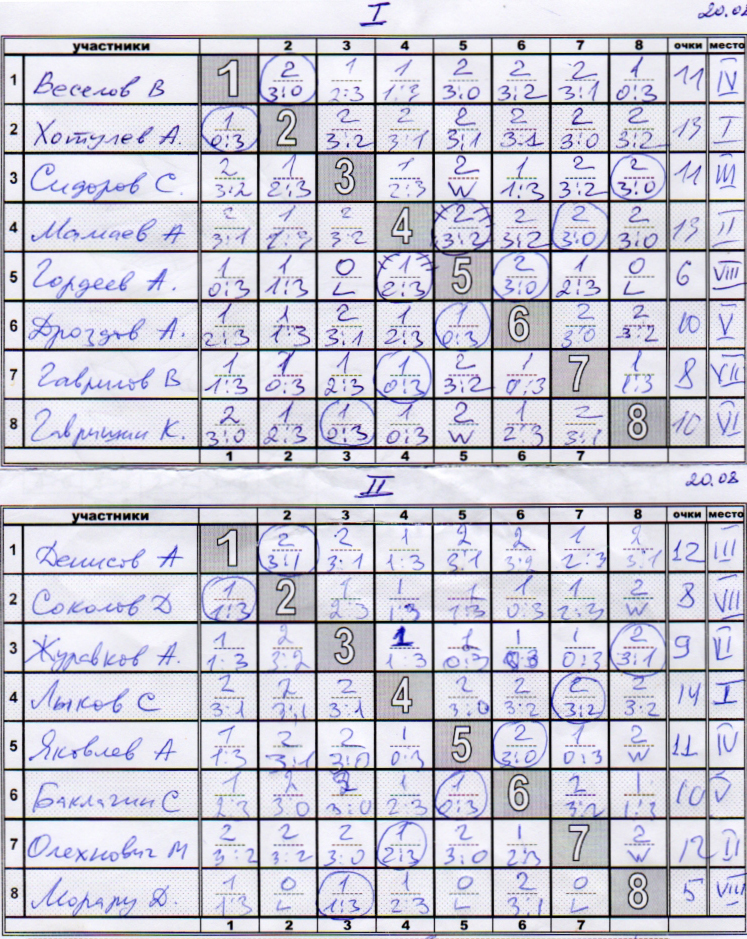 I 20.08
участники 2 3 4 5 6 7 8 очки место
1 Веселов В 1 2 3:0 1 2:3 1 1:3 2 3:0 2 3:2 2 3:1 1 0:3 11 IV
2 Хотулев А. 1 0:3 2 2 3:2 2 3:1 2 3:1 2 3:1 2 3:0 2 3:2 13 I
3 Сидоров С. 2 3:2 1 2:3 3 1 2:3 2 W 1 1:3 2 3:2 2 3:0 11 III
4 Мамаев А 2 3:1 1 2 3:2 4 2 3:2 2 3:2 2 3:0 2 3:0 13 II
5 Гордеев А. 1 0:3 1 1:3 0 L 1 2:3 5 2 3:0 1 2:3 0 L 6 VIII
6 Дроздов А. 1 2:3 1 1:3 2 3:1 1 2:3 1 0:3 6 2 3:0 2 3:2 10 V
7 Гаврилов В 1 1:3 1 0:3 1 2:3 1 0:3 2 3:2 1 0:3 7 1 1:3 8 VII
8 Гаврицин К. 2 3:0 1 2:3 1 0:3 1 0:3 2 W 1 2:3 2 3:1 8 10 VI
1 2 3 4 5 6 7
II 20.08
участники 2 3 4 5 6 7 8 очки место
1 Денисов А 1 2 3:1 2 3:1 1 1:3 2 3:1 2 3:2 1 2:3 2 3:1 12 III
2 Соколов Д 1 1:3 2 1 2:3 1 1:3 1 1:3 1 0:3 1 2:3 2 W 8 VII
3 Журавков А. 1 1:3 2 3:2 3 1 1:3 1 0:3 1 0:3 1 0:3 2 3:1 9 VI
4 Лыков С 2 3:1 2 3:1 2 3:1 4 2 3:0 2 3:2 2 3:2 2 3:2 14 I
5 Яковлев А 1 1:3 2 3:1 2 3:0 1 0:3 5 2 3:0 1 0:3 2 W 11 IV
6 Баклагин С 1 2:3 2 3:0 2 3:0 1 2:3 1 0:3 6 2 3:2 1 1:3 10 V
7 Олехнович М 2 3:2 2 3:2 2 3:0 1 2:3 2 3:0 1 2:3 7 2 W 12 II
8 Морару Д. 1 1:3 0 L 1 1:3 1 2:3 0 L 2 3:1 0 L 8 5 VIII
1 2 3 4 5 6 7